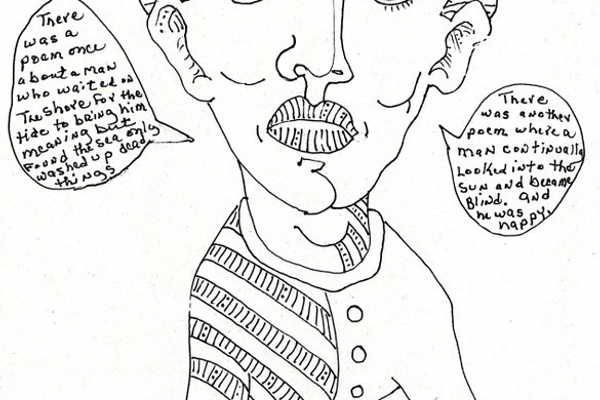 There
was a
poem once
about a man
who waited on
The shore for the
tide to being him
meaning but
Found the sea only
washed up dead
things
There
was another
poem where a
man continually
Looked into the
sun and became
Blind. and
he was
happy.